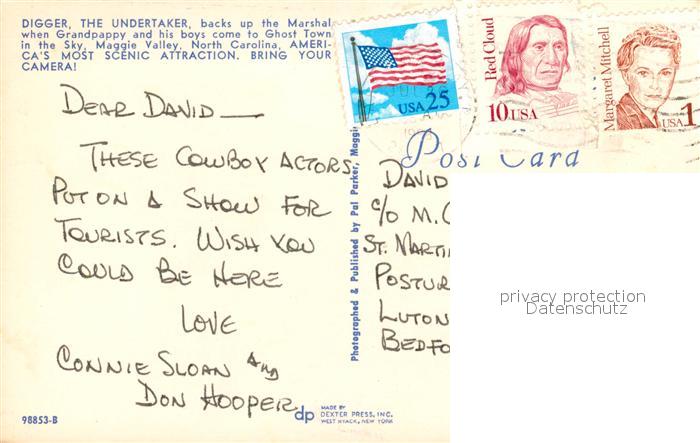 DIGGER, THE UNDERTAKER, backs up the Marshal
when Grandpappy and his boys come to Ghost Town
in the Sky, Maggie Valley, North Carolina, AMERI-
CA'S MOST SCENIC ATTRACTION. BRING YOUR
CAMERA!
DEAR DAVID —
THESE COWBOY ACTORS
PUT ON A SHOW FOR
TOURISTS. WISH YOU
COULD BE HERE
LOVE
CONNIE SLOAN AND
DON HOOPER
98853-B
Photographed & Published by Pal Parker, Maggie
dp
MADE BY
DEXTER PRESS, INC.
WEST NYACK, NEW YORK
USA 25
Red Cloud
10 USA
Margaret Mitchell
USA 1
Post Card
DAVID
c/o M.
ST. MARTI
POSTUR
LUTON
BEDFO
privacy protection
Datenschutz